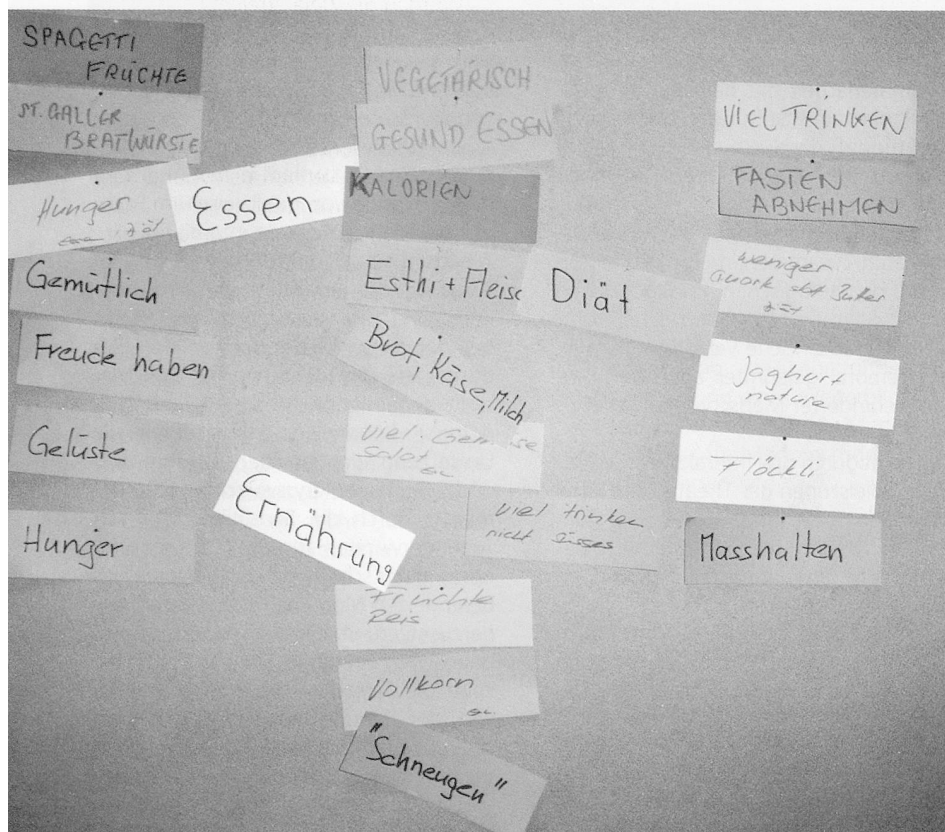 SPAGETTI
FRÜCHTE
ST. GALLER
BRATWÜRSTE
Hunger
Essen
Gemütlich
Freude haben
Gelüste
Hunger
VEGETARISCH
GESUND ESSEN
KALORIEN
Esthi + Fleisc
Brot, Käse, Milch
viel Gemüse
Salat
Ernährung
viel trinken
nicht süsses
Früchte
Reis
Vollkorn
"Schneugen"
Diät
VIEL TRINKEN
FASTEN
ABNEHMEN
weniger
Joghurt
nature
Flöckli
Masshalten